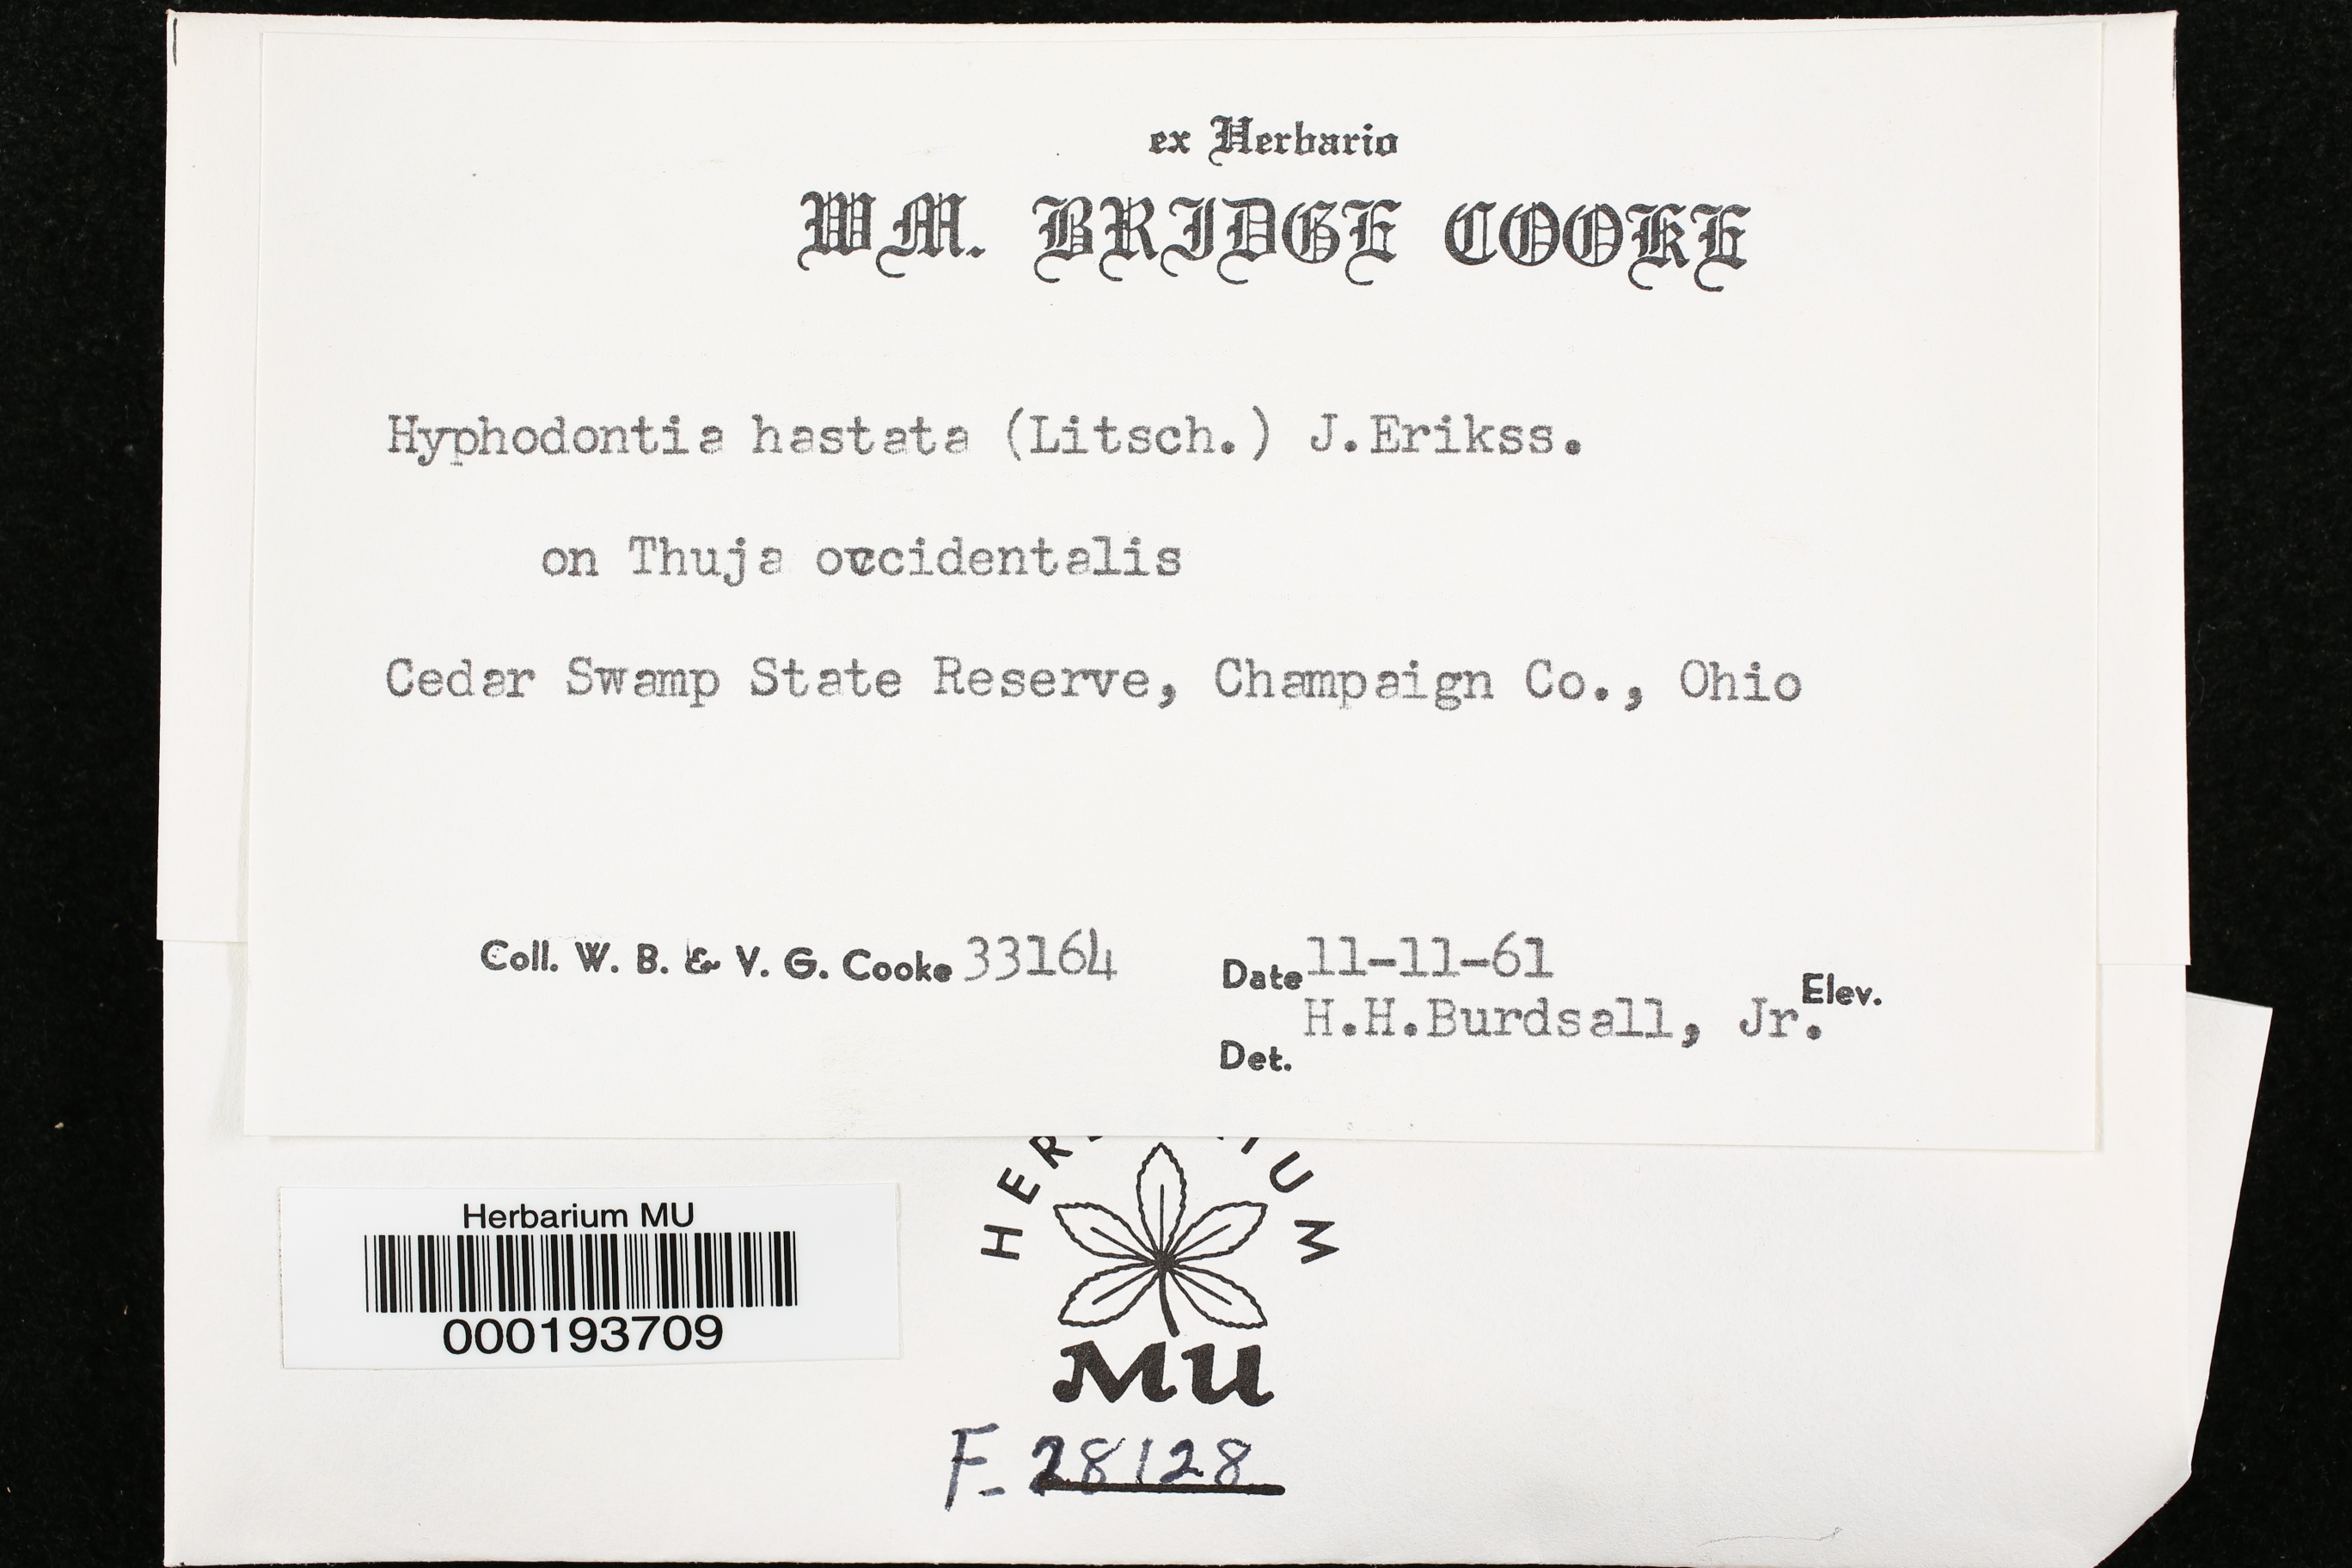 ex Herbario
WM. BRIDGE COOKE
Hyphodontia hastata (Litsch.) J.Erikss.
on Thuja occidentalis
Cedar Swamp State Reserve, Champaign Co., Ohio
Coll. W. B. & V. G. Cooke 33164 Date 11-11-61 Elev.
Det. H.H.Burdsall, Jr.
Herbarium MU
000193709
MU
F- 28128